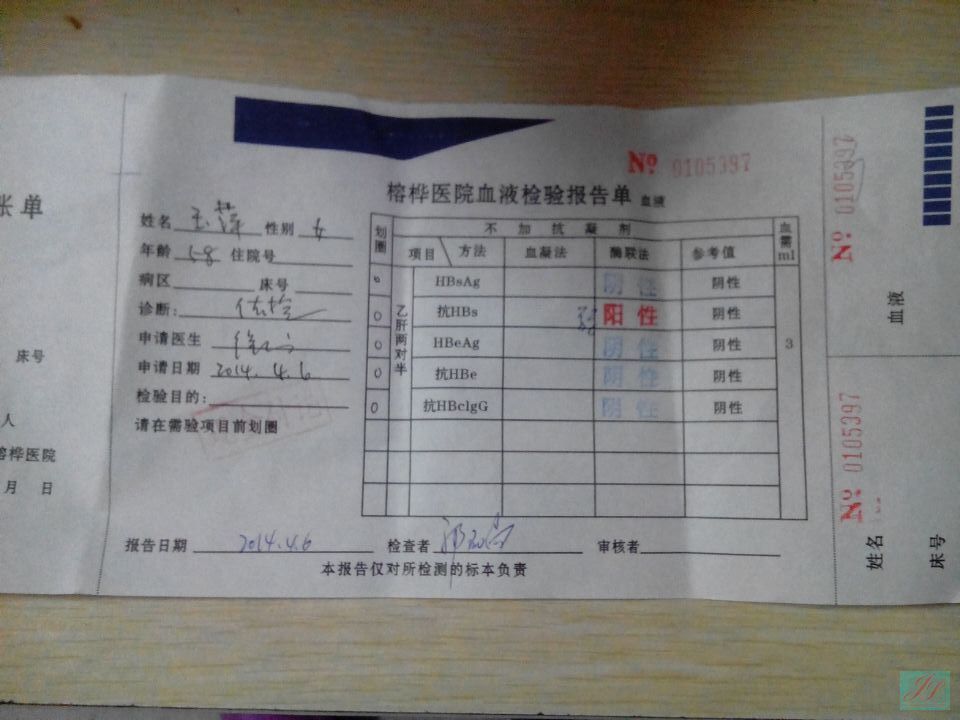 张单
床号
人
榕桦医院
月 日
No 0105397
榕桦医院血液检验报告单 血液
姓名 玉萍 性别 女
年龄 58 住院号
病区 床号
诊断:
申请医生
申请日期 2014.4.6
检验目的:
请在需验项目前划圈
划圈 不加抗凝剂 血需ml
项目 方法 血凝法 酶联法 参考值
乙肝两对半
O HBsAg 阴性 阴性
O 抗HBs 阳性 阴性
O HBeAg 阴性 阴性 3
O 抗HBe 阴性 阴性
O 抗HBclgG 阴性 阴性
报告日期 2014.4.6 检查者 审核者
本报告仅对所检测的标本负责
No 0105397
血液
No 0105397
姓名
床号